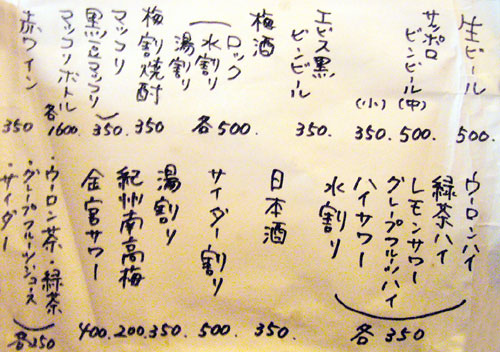 生ビール 500.
サッポロ
ビンビール (中) 500.
(小) 350.
エビス黒
ビンビール 350.
梅酒
ロック
水割り
湯割り
各500.
梅割焼酎 350
マッコリ
黒豆マッコリ
350.
マッコリボトル 各1600.
赤ワイン 350
ウーロンハイ
緑茶ハイ
レモンサワー
グレープフルーツハイ
ハイサワー
水割り
各350
日本酒 350.
サイダー割り 500.
湯割り 350.
紀州南高梅 200.
金宮サワー 400.
・ウーロン茶・緑茶
・グレープフルーツジュース
・サイダー
各250